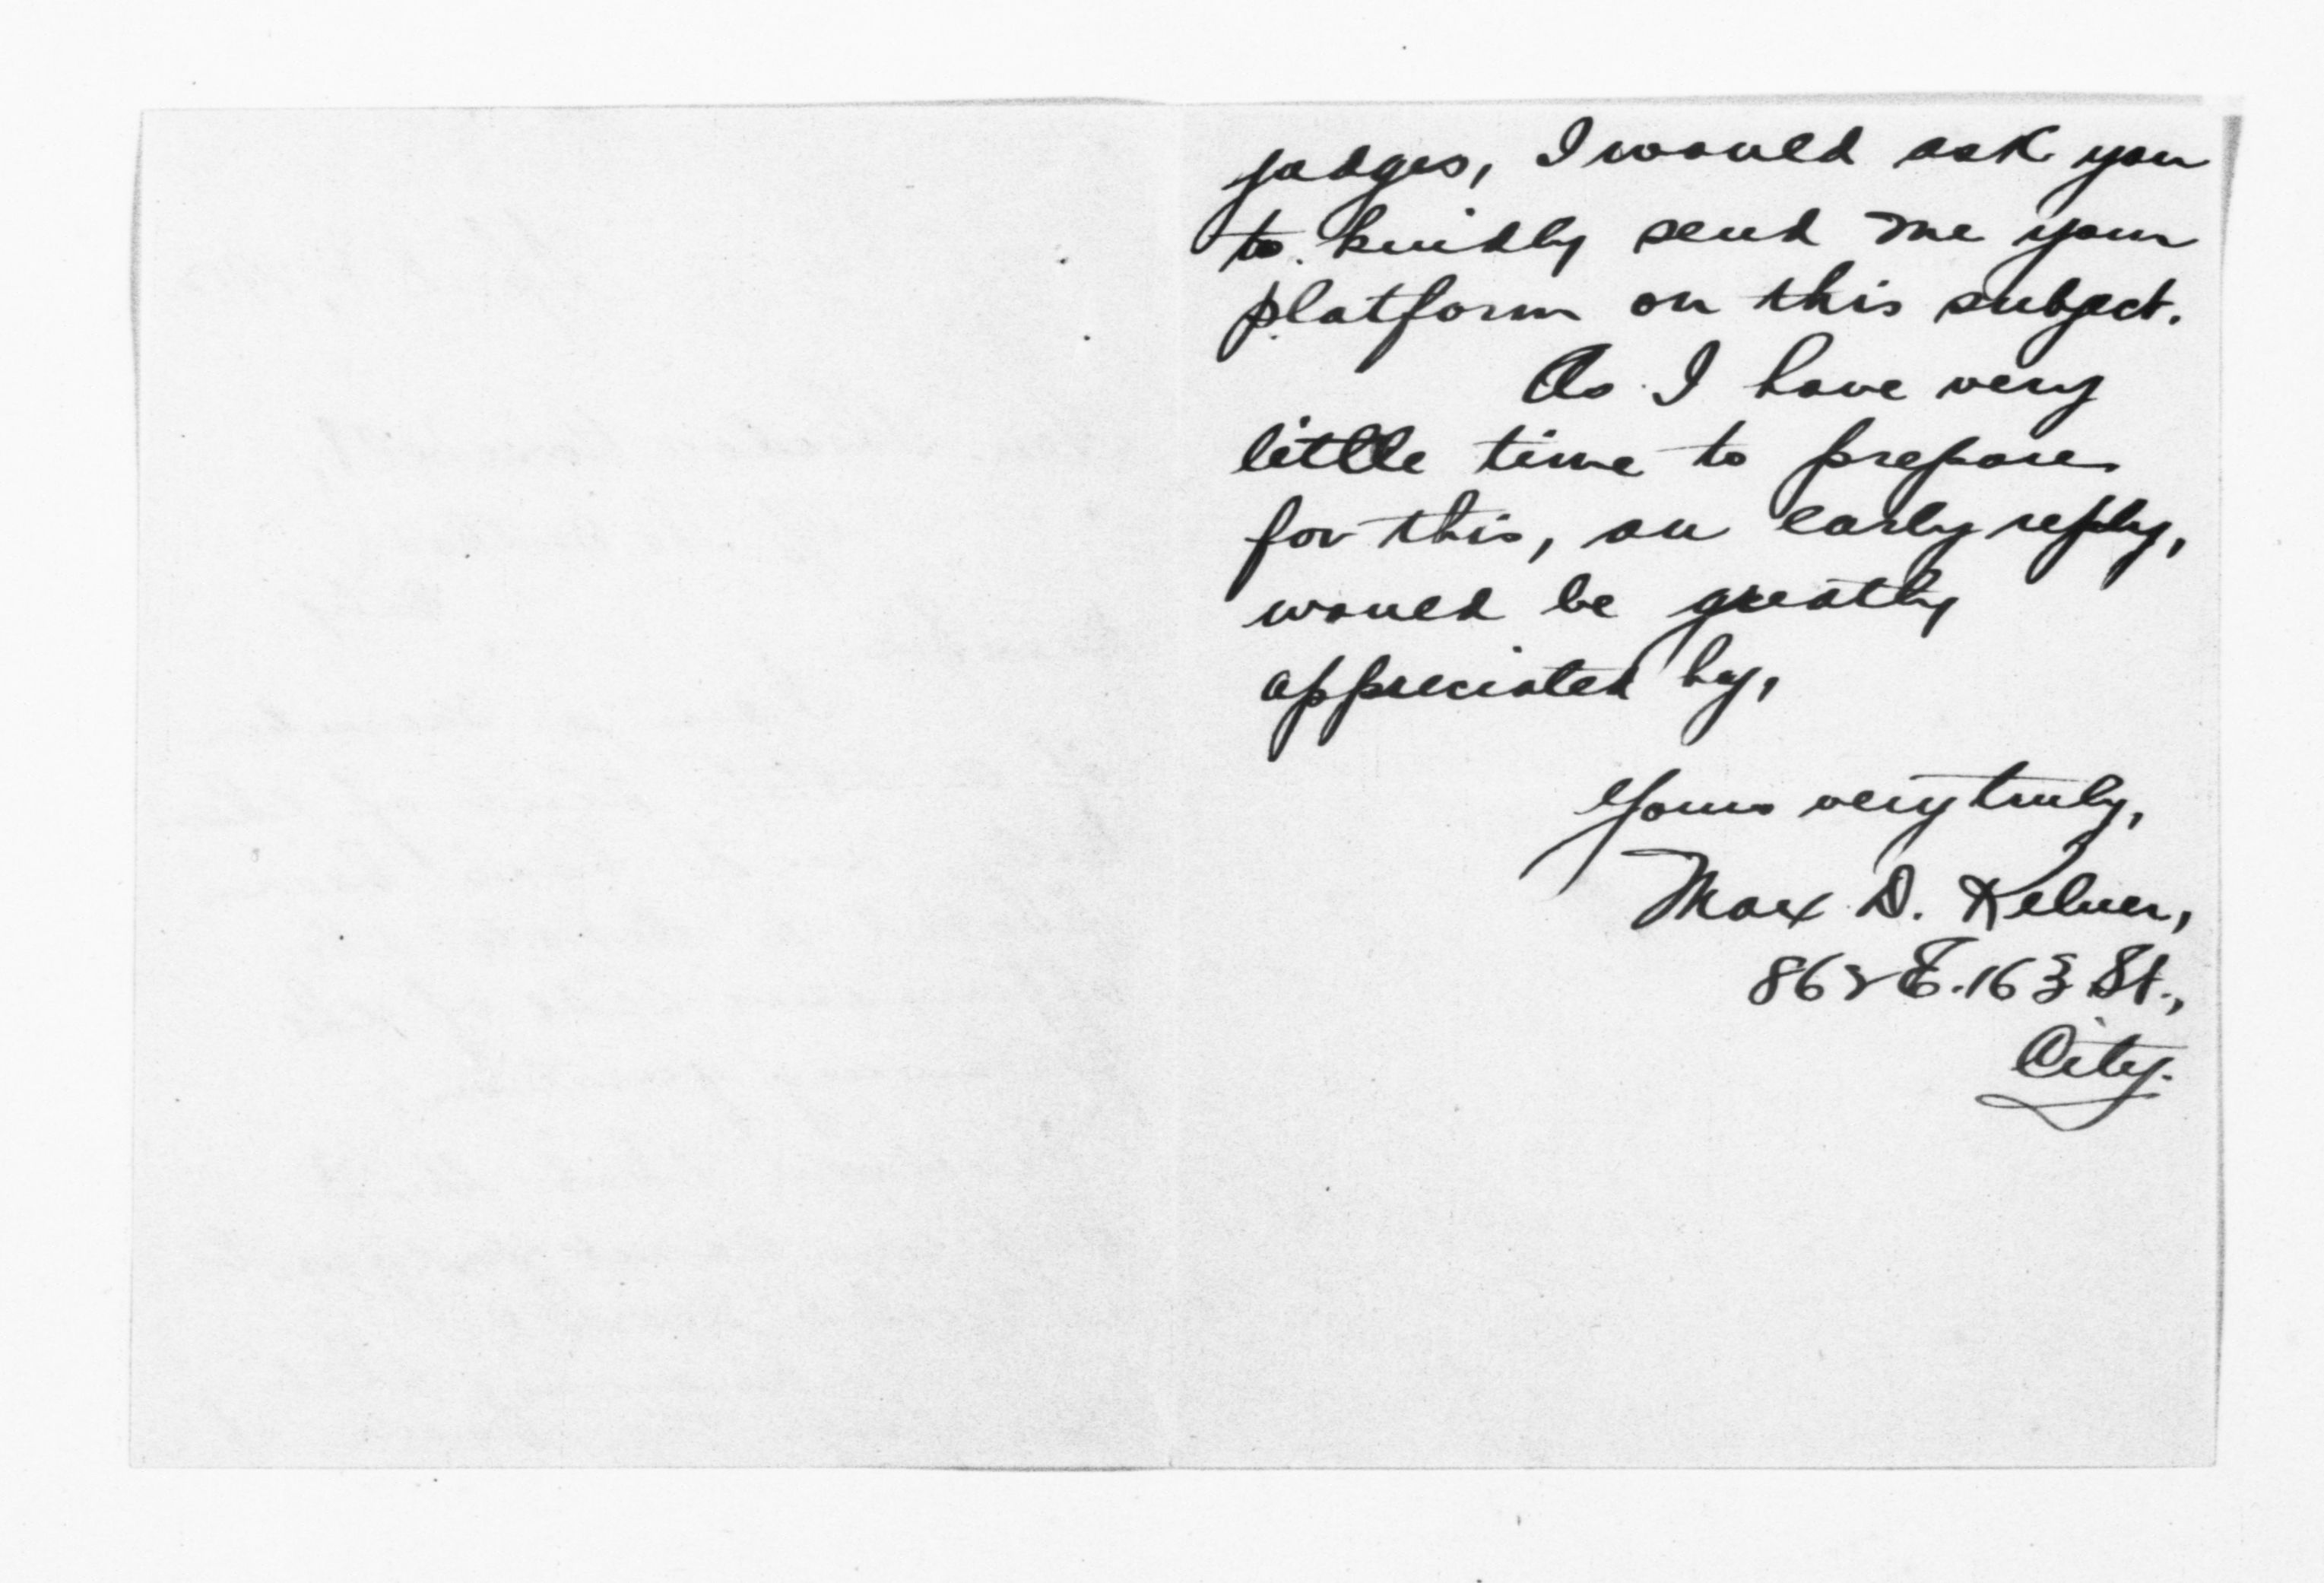 judges, I would ask you
to kindly send me your
platform on this subject.
As I have very
little time to prepare
for this, an early reply,
would be greatly
appreciated by,
Yours very truly,
Max D. Kelner,
862 E. 163 St.,
City.